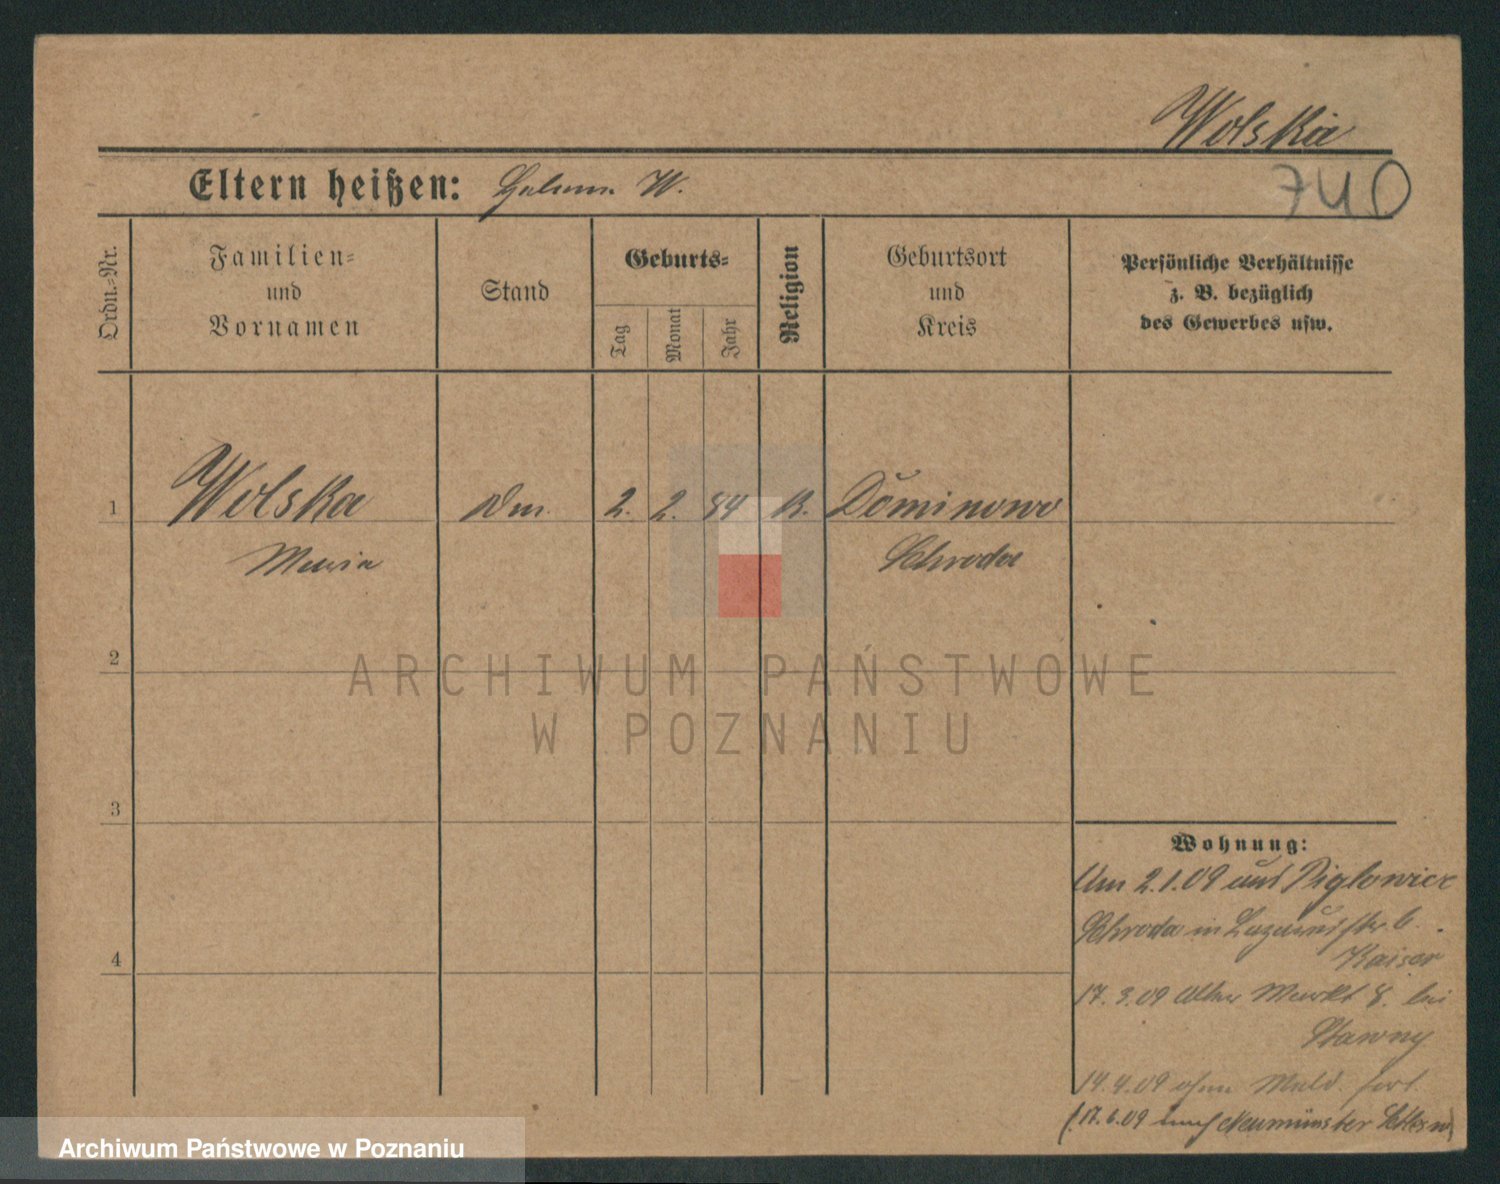 Wolska
Eltern heißen: W.
740
Ordn.-Nr.
Familien-
und
Vornamen
Stand
Geburts-
Tag
Monat
Jahr
Religion
Geburtsort
und
Kreis
Persönliche Verhältnisse
z. B. bezüglich
des Gewerbes usw.
1 Wolska 2. 2. 84 K. Dominowo
Maria Schroda
2
3
4
ARCHIWUM PAŃSTWOWE
W POZNANIU
Wohnung:
Am 2.1.09 aus Piglowice
Schroda in 6.
Kaiser
17.3.09 Alter Markt 8. bei
Stawny
14.4.09 ohne Meld. fort.
(17.6.09 nach Neumünster
Archiwum Państwowe w Poznaniu